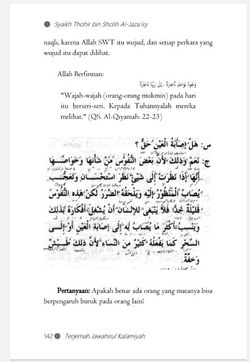 Syaikh Thohir bin Sholih Al-Jaza'iry
naqli, karena Allah SWT itu wujud, dan setiap perkara yang
wujud itu dapat dilihat.
Allah Berfirman:
وُجُوهٌ يَوْمَئِذٍ نَاضِرَةٌ . إِلَى رَبِّهَا نَاظِرَةٌ
"Wajah-wajah (orang-orang mukmin) pada hari
itu berseri-seri. Kepada Tuhannyalah mereka
melihat." (QS. Al-Qiyamah: 22-23)
س: هَلْ إِصَابَةُ الْعَيْنِ حَقٌّ ؟
ج: نَعَمْ وَذٰلِكَ لِأَنَّ بَعْضَ النُّفُوْسِ مِنْ شَأْنِهَا وَخَوَاصِّهَا
أَنَّهَا إِذَا نَظَرَتْ إِلَى شَيْءٍ نَظَرَ اسْتِحْسَانٍ وَتَعَجُّبٍ
يُصَابُ الْمَنْظُوْرُ إِلَيْهِ وَيَلْحَقُهُ الضَّرَرُ لٰكِنْ هٰذِهِ النُّفُوْسُ
قَلِيْلَةٌ جِدًّا فَلَا يَنْبَغِيْ لِلْإِنْسَانِ أَنْ يَشْغَلَ أَفْكَارَهُ بِذٰلِكَ
وَيَنْسِبَ أَكْثَرَ مَا يُصَابُ بِهِ إِلَى إِصَابَةِ الْعَيْنِ أَوْ إِلَى
السِّحْرِ كَمَا يَفْعَلُهُ كَثِيْرٌ مِنَ النِّسَاءِ لِأَنَّ ذٰلِكَ طَيْشٌ
وَخِفَّةٌ
Pertanyaan: Apakah benar ada orang yang matanya bisa
berpengaruh buruk pada orang lain?
142 Terjemah Jawahirul Kalamiyah